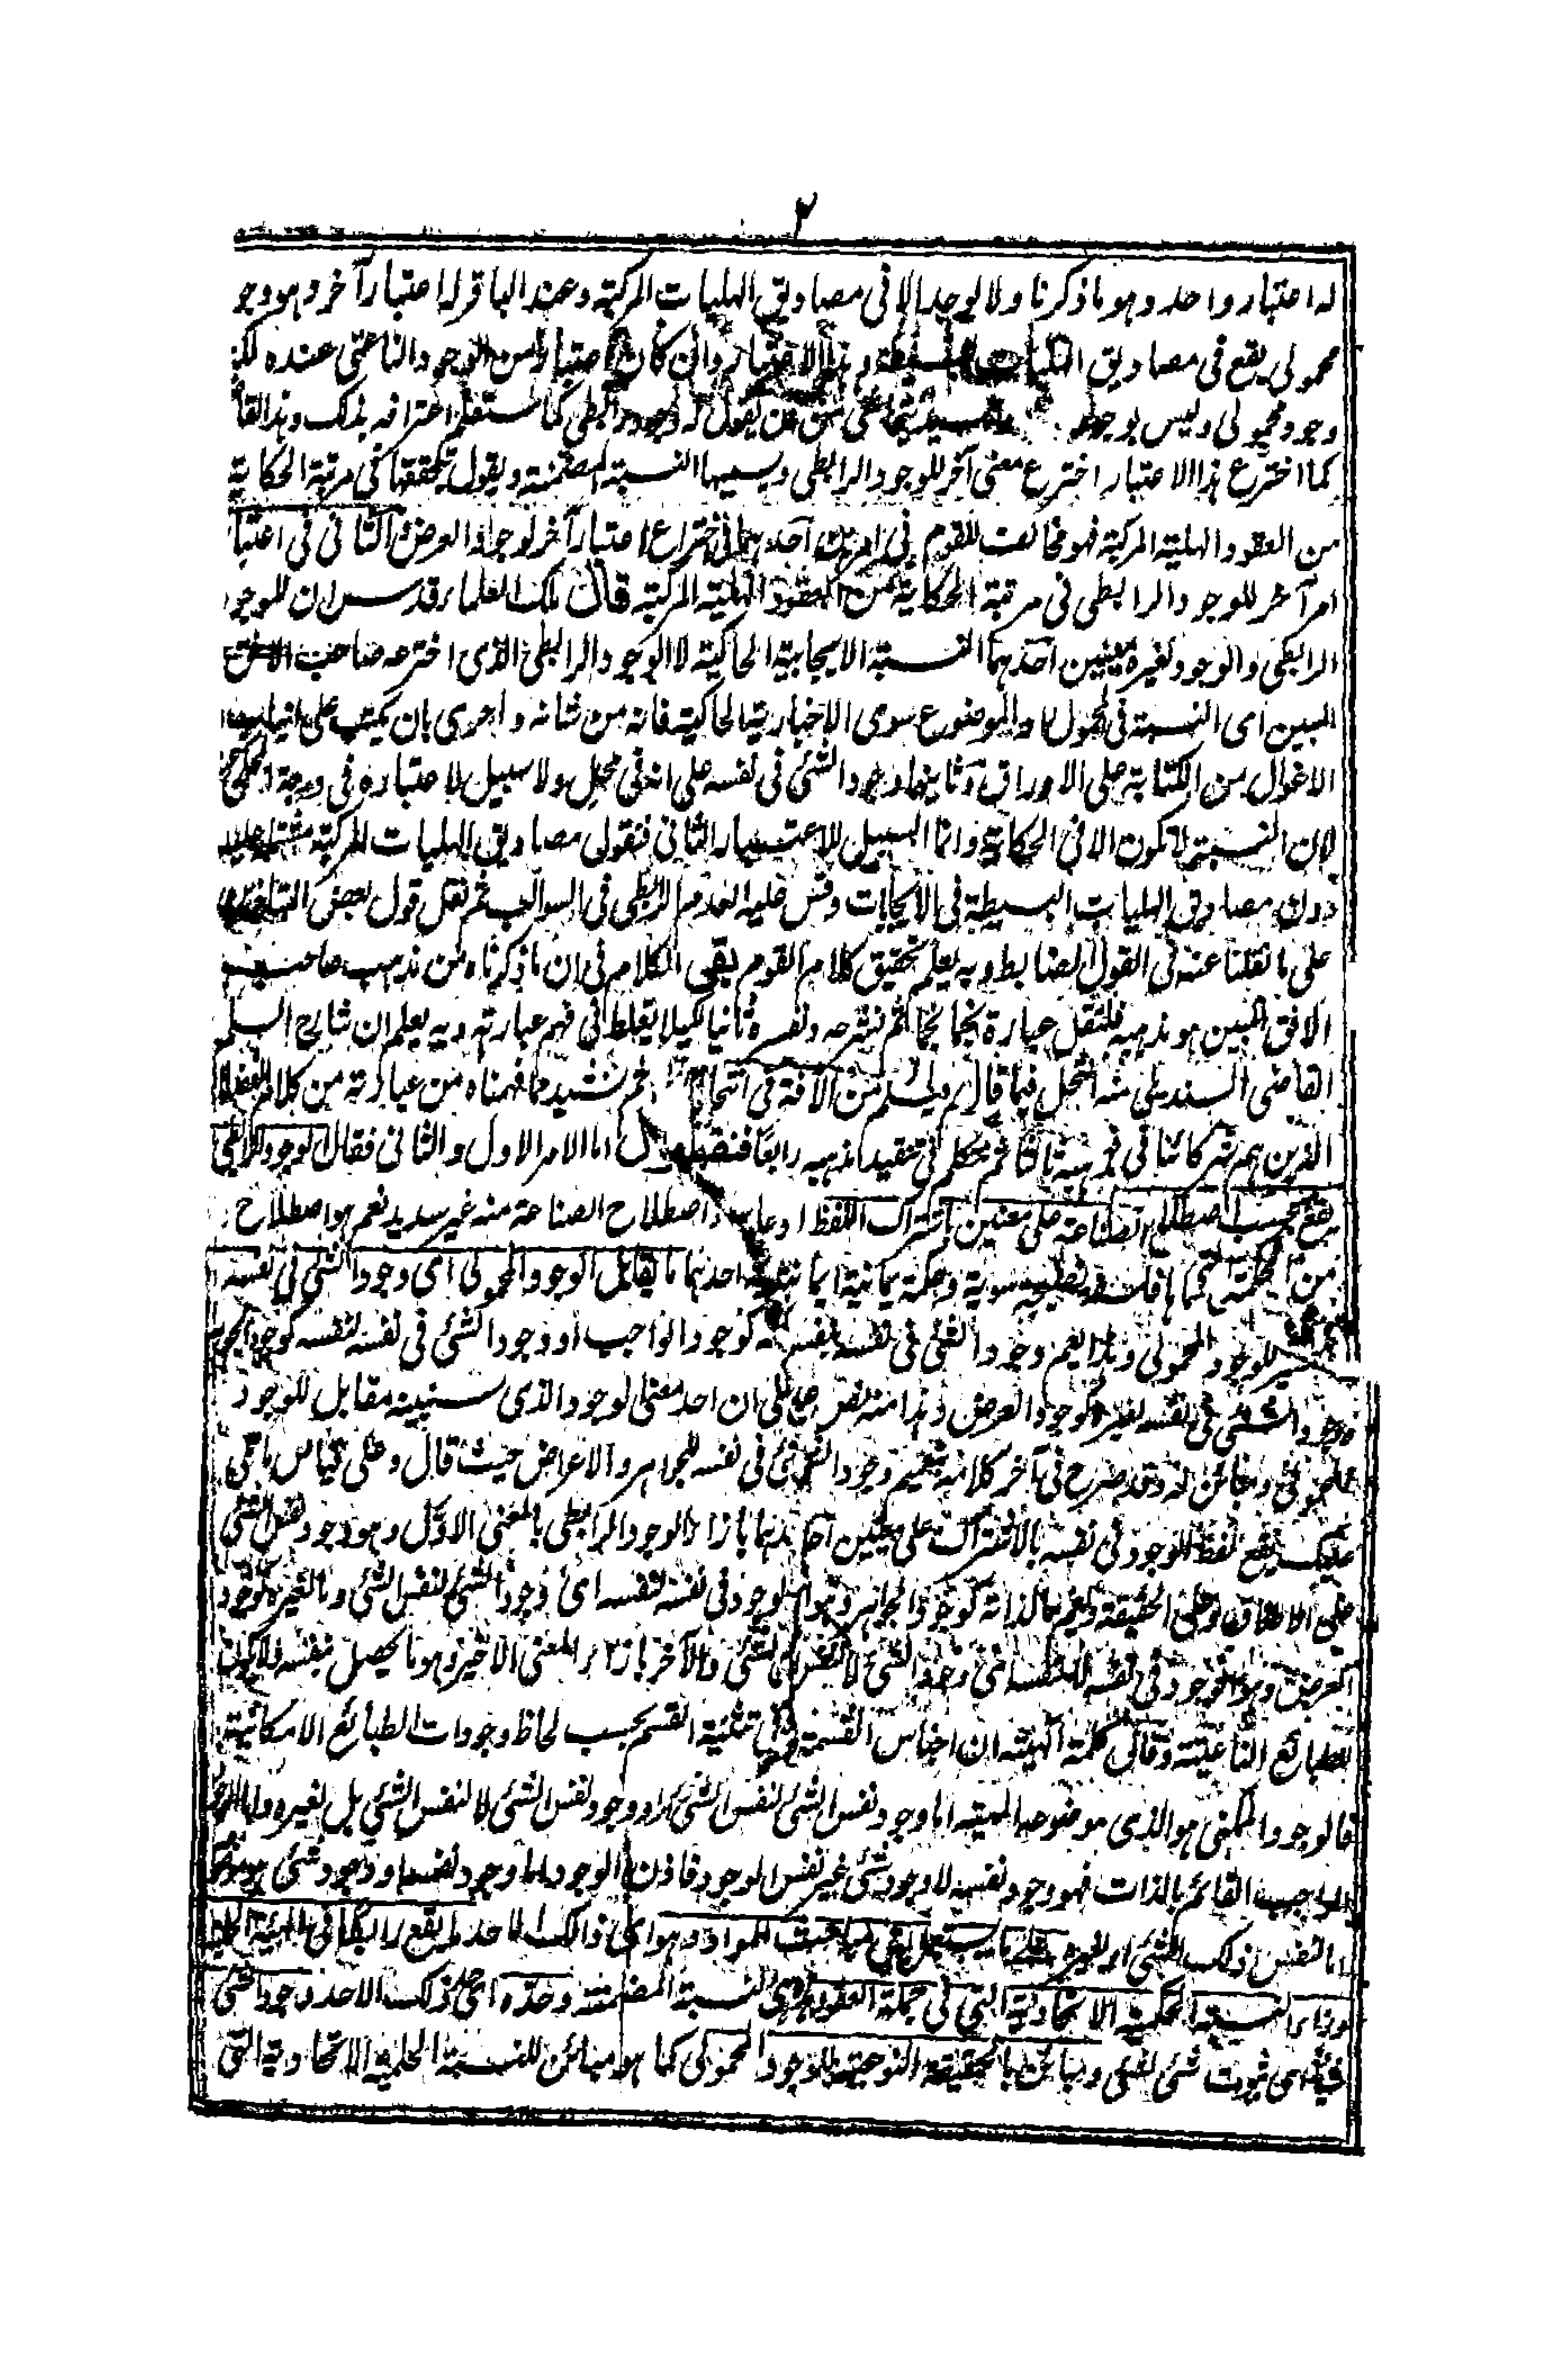 ٢
له اعتبار واحد وهو ما ذكرنا ولا يوجد الا فى مصاديق الهليات المركبة وعند الباقر له اعتبار آخر وهو وجو
محمولى يقع فى مصاديق الهليات البسيطة وهذا الاعتبار وان كان اعتبارا من الوجود الناعتى عنده لكن
وجود محمولى وليس بوجود من يقول له وجود رابطى كالمستغل اعترافه بذلك وهذا القا
كما اخترع هذا الاعتبار اخترع معنى آخر للوجود الرابطى ويسميها النسبة المضمنة ويقول بتحققها فى مرتبة الحكاية
من العقود الهلية المركبة فهو مخالف للقوم فى امرين احدهما فى اختراع اعتبار آخر لوجود العرض والثانى فى اعتبا
امر آخر للوجود الرابطى فى مرتبة الحكاية من العقود الهلية المركبة قال ملك العلماء قدس سره ان للوجود
الرابطى والوجود لغيره معنيين احدهما النسبة الايجابية الحاكية لا الوجود الرابطى الذى اخترعه صاحب الافق
المبين اى النسبة فى المحمول او الموضوع سوى الاخبارية الحاكية فانه من شانه واحرى بان يكتب على انياب
الاغوال من الكتابة على الاوراق وثانيهما وجود الشئ فى نفسه على انه فى محل ولا سبيل لاعتباره فى درجة
لان النسبة لا تكون الا فى الحكاية وانما السبيل للاعتبار الثانى فنقول مصاديق الهليات المركبة مشتملة عليه
دون مصاديق الهليات البسيطة فى الايجابات وقس عليه العدم الرابطى فى السوالب ثم نقل قول بعض
على ما نقلنا عنه فى القول الضابط وبه يعلم تحقيق كلام القوم بقى الكلام فى ان ما ذكرناه من مذهب صاحب
الافق المبين هو مذهبه فلننقل عبارة نجما نجما ثم نشرحه ونفسره ثانيا لكيلا يغلط فى فهم عبارته وبه يعلم ان شارح السلم
القاضى السنديلى منه انتحل فيما قال ولم يسلم من الآفة فى انتحاله ثم نشيد ما فهمناه من عبارته من كلام الفضلا
الذين هم شركائنا فى فهمه ثالثا ثم نتكلم فى تنقيد مذهبه رابعا فنقول اما الامر الاول والثانى فقال الوجود الرابطى
يقع بحسب اصطلاح الصناعة على معنيين باشتراك اللفظ ادعاء اصطلاح الصناعة منه غير سديد نعم هو اصطلاح
من الحكمة سوية وحكمة يمانية ايمانية احدهما ما يقابل الوجود المحمولى اى وجود الشئ فى نفسه
للوجود المحمولى وهذا يعم وجود الشئ فى نفسه بنفسه كوجود الواجب او وجود الشئ فى نفسه لنفسه كوجود الجوهر
ووجود الشئ فى نفسه لغيره كوجود العرض وهذا منه نص على ان احد معنى الوجود الذى سنبينه مقابل للوجود
المحمولى ومبائن له وقد صرح فى آخر كلامه بتعميم وجود الشئ فى نفسه للجواهر والاعراض حيث قال وعلى قياس ما تلى
عليك يقع لفظ الوجود فى نفسه بالاشتراك على معنيين احدهما بازاء الوجود الرابطى بالمعنى الاول وهو وجود نفس الشئ
على الاطلاق وعلى الحقيقة ويعم ما لذاته كوجود الجواهر وهو الوجود فى نفسه لنفسه اى وجود الشئ لنفس الشئ وما لغيره كوجود
العرض وهو الوجود فى نفسه لا لنفسه اى وجود الشئ لا لنفس الشئ والآخر بازاء المعنى الاخير وهو ما يحصل بنفسه فلا يكون
للطبائع الناعتية وقال كلمة الهية ان اجناس القسمة تثنية القسم بحسب لحاظ وجودات الطبائع الامكانية
فالوجود الممكنى هو الذى موضوعه الماهية اما وجود نفس الشئ لنفس الشئ او وجود نفس الشئ لا لنفس الشئ بل لغيره واما الوجود
الواجب القائم بالذات فهو وجود نفسه لا وجود شئ غير نفس الوجود فاذن الوجود اما وجود نفسه او وجود شئ هو موضوع
اما لنفس ذلك الشئ او لغيره يستعمل فى مباحث المواد وهو اى ذلك الاحد ما يقع رابطا فى الهلية المركبة
وراء النسبة الحكمية الاتحادية التى فى جملة العقود وهى النسبة المضمنة وحده اى حد ذلك الاحد وجود الشئ
شيئا اى ثبوت شئ لشئ ومبائن بالحقيقة النوعية للوجود المحمولى كما هو مبائن للنسبة الحملية الاتحادية التى